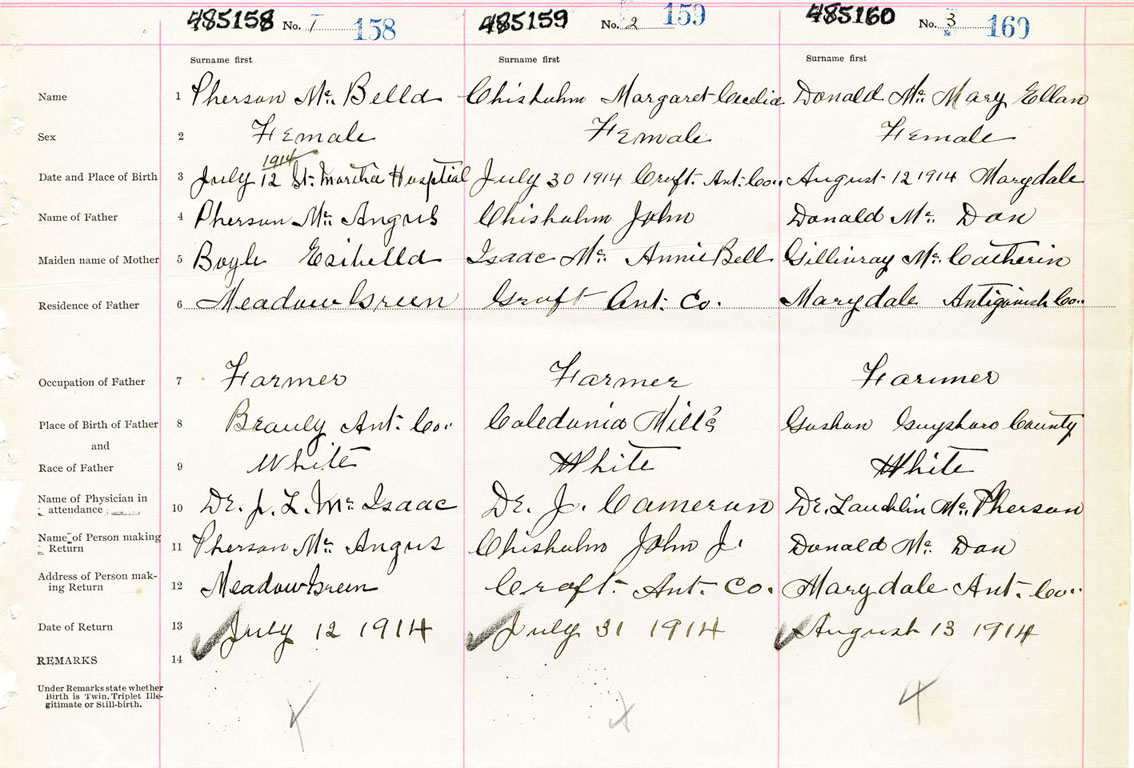 485158 No. 1 158 485159 No. 2 159 485160 No. 3 160
Surname first Surname first Surname first
Name 1 Pherson Mc. Belld Chisholm Margaret Cecelia Donald Mc. Mary Ellan
Sex 2 Female Female Female
1914
Date and Place of Birth 3 July 12 St. Martha Hosptial July 30 1914 Croft. Ant. Co.. August 12 1914 Marydale
Name of Father 4 Pherson Mc. Angus Chisholm John Donald Mc. Dan
Maiden name of Mother 5 Boyle Isaac Mc. Annie Bell Gillivray Mc. Catherin
Residence of Father 6 Meadow Green Croft Ant. Co. Marydale Antigonish Co..
Occupation of Father 7 Farmer Farmer Farmer
Place of Birth of Father 8 Brauly Ant. Co.. Caledonia Mills Goshan Guysboro County
and
Race of Father 9 White White White
Name of Physician in
attendance 10 Dr. J. L. Mc Isaac Dr. J. Cameron Dr. Lauchlin Mc. Pherson
Name of Person making
Return 11 Pherson Mc. Angus Chisholm John J. Donald Mc. Dan
Address of Person mak-
ing Return 12 Meadow Green Croft. Ant. Co. Marydale Ant. Co..
Date of Return 13 July 12 1914 July 31 1914 August 13 1914
REMARKS 14
Under Remarks state whether
Birth is Twin, Triplet Ille-
gitimate or Still-birth.